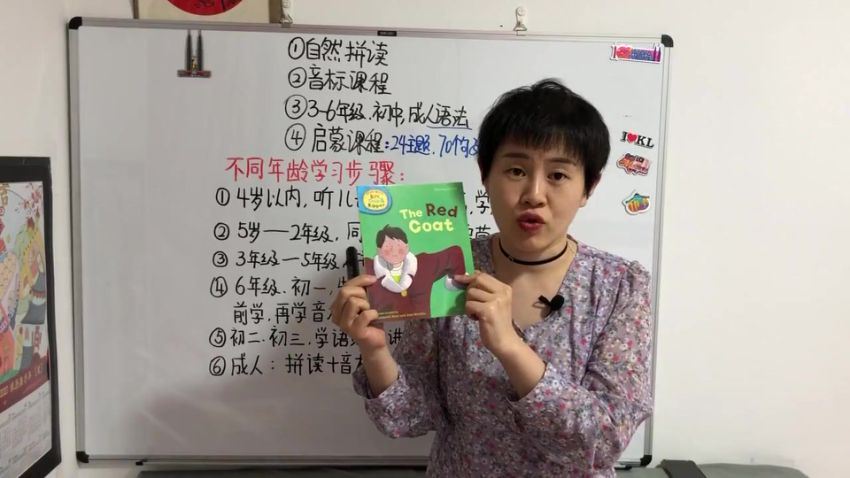 ①自然拼读
②音标课程
③3-6年级、初中、成人语法
④启蒙课程：24主题、70个
不同年龄学习步骤：
①4岁以内，听儿
，学
②5岁——2年级，同
③3年级—5年级
④6年级、初一，
前学，再学音
⑤初二、初三，学语
讲
⑥成人：拼读+音
Biff,
Chip &
Kipper
The Red
Coat
I ♥ KL